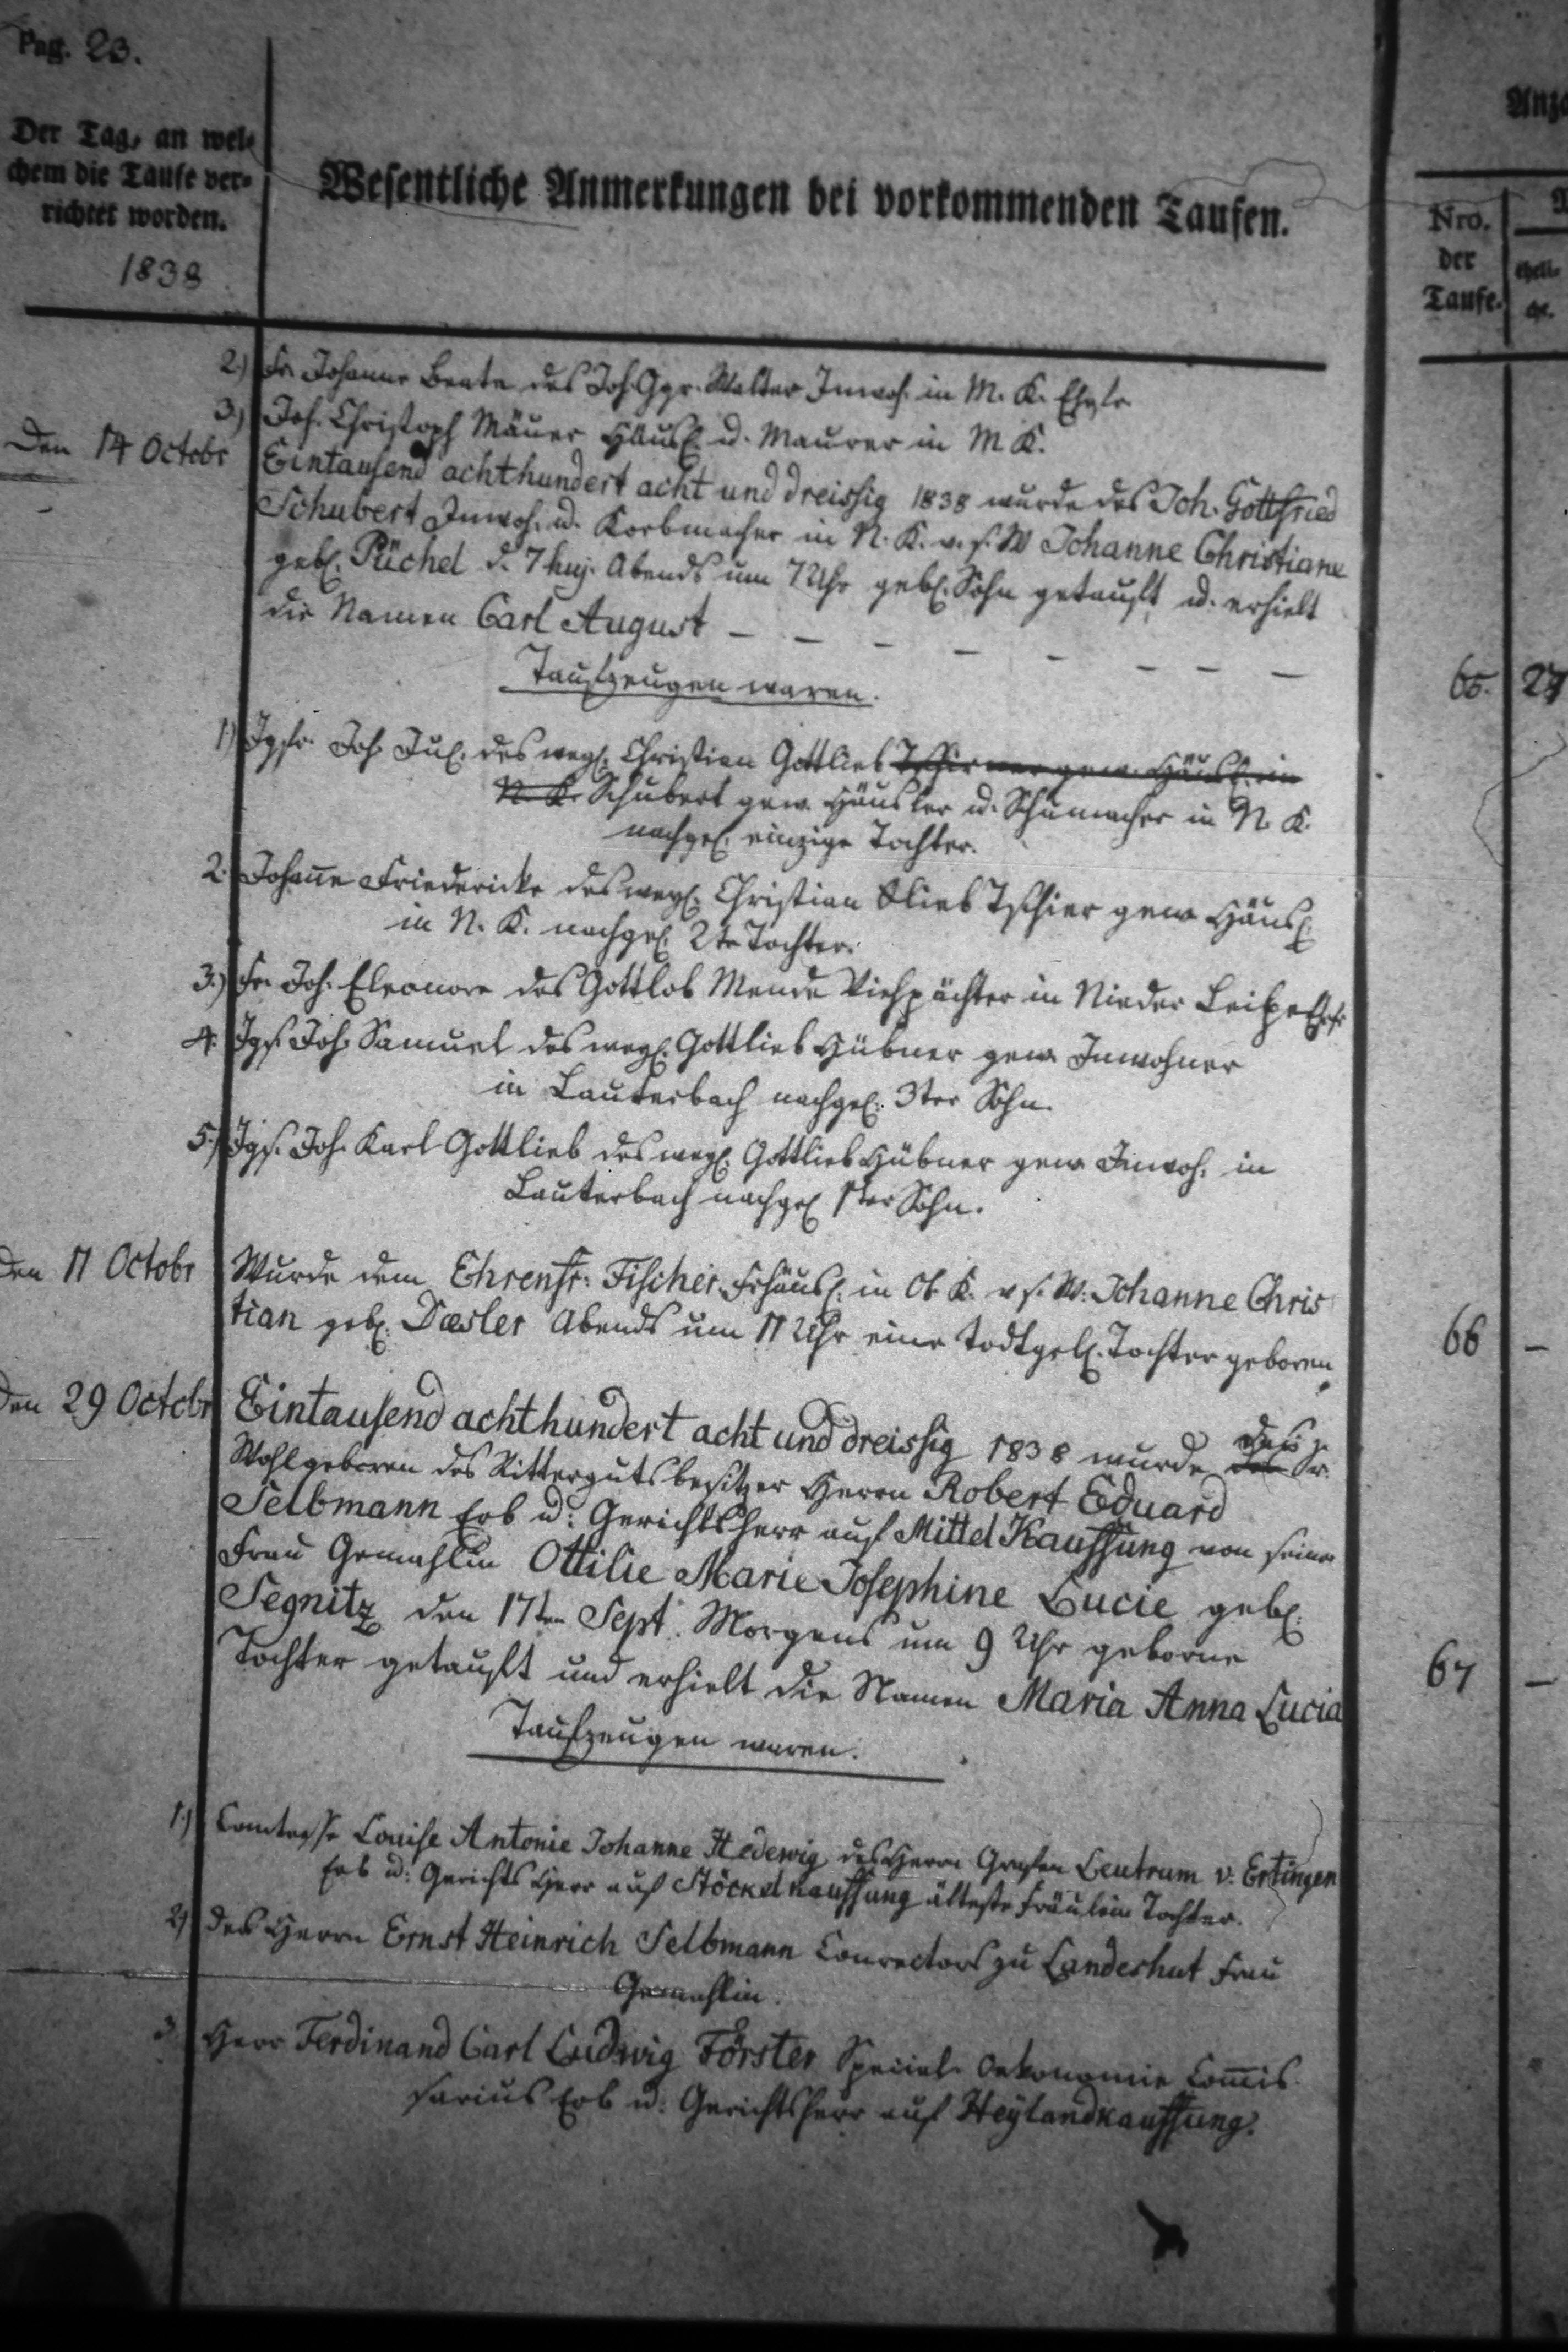 Pag. 23.
Der Tag, an wel-
chem die Taufe ver-
richtet worden.
1838
Wesentliche Anmerkungen bei vorkommenden Taufen.
Nro.
der
Taufe.
2.) Fr. Johanne Beate des Joh. Ggr. Walter Inwoh. in M. K. Ehgtr.
3.) Joh. Christoph Mäuer Häusl. u. Maurer in M K.
Den 14 Octobr Eintausend achthundert acht und dreissig 1838 wurde des Joh. Gottfried
Schubert Inwoh. u. Korbmacher in N. K. v. s. W Johanne Christiane
geb. Püchel d. 7 huj. Abends um 7 Uhr geb. Sohn getauft u. erhielt
die Namen Carl August – – – – – – – –
65. 27
Taufzeugen waren.
1.) Jgfr. Joh. Jul. des wegl. Christian Gottlieb Tschirner gew. Häusl. in
N. K. Schubert gew. Häusler u. Schumacher in N. K.
nachgel. einzige Tochter.
2. Johañe Friedericke des wegl. Christian Glieb Tschier gew. Häusl.
in N. K. nachgel. 2te Tochter.
3.) Fr. Joh. Eleonore des Gottlob Mende Viehpächter in Nieder Leipe Ehefr
4. Jgs. Joh. Samuel des wegl. Gottlieb Hübner gew. Inwohner
in Lauterbach nachgel. 3ter Sohn.
5.) Jgs. Joh. Karl Gottlieb des wegl. Gottlieb Hübner gew Inwoh. in
Lauterbach nachgel 1ter Sohn.
Den 17 Octobr Wurde dem Ehrenfr. Fischer Frhäusl. in Ob. K. v s. W. Johanne Chris
tian geb. Dæsler Abends um 11 Uhr eine todtgeb. Tochter geboren
66 –
Den 29 Octobr Eintausend achthundert acht und dreissig 1838 wurde Sr.
Wohlgeboren des Rittergutsbesitzer Herrn Robert Eduard
Selbmann Erb u: Gerichtsherr auf Mittel Kauffung von seiner
Frau Gemahlin Ottilie Marie Josephine Lucie geb.
Segnitz den 17ten Sept. Morgens um 9 Uhr geborne
Tochter getauft und erhielt die Namen Maria Anna Lucia
67 –
Taufzeugen waren.
1.) Comtesse Louise Antonie Johanne Hedewig des Herrn Grafen Leutrum v. Ertingen
Erb u: Gerichts Herr auf Stöckelkauffung älteste Fräulein Tochter.
2) des Herrn Ernst Heinrich Selbmann Conrectors zu Landeshut Frau
Gemahlin.
3 Herr Ferdinand Carl Ludwig Förster Special Oekonomie Com̄is
sarius Erb u: Gerichtsherr auf Heylandkauffung.